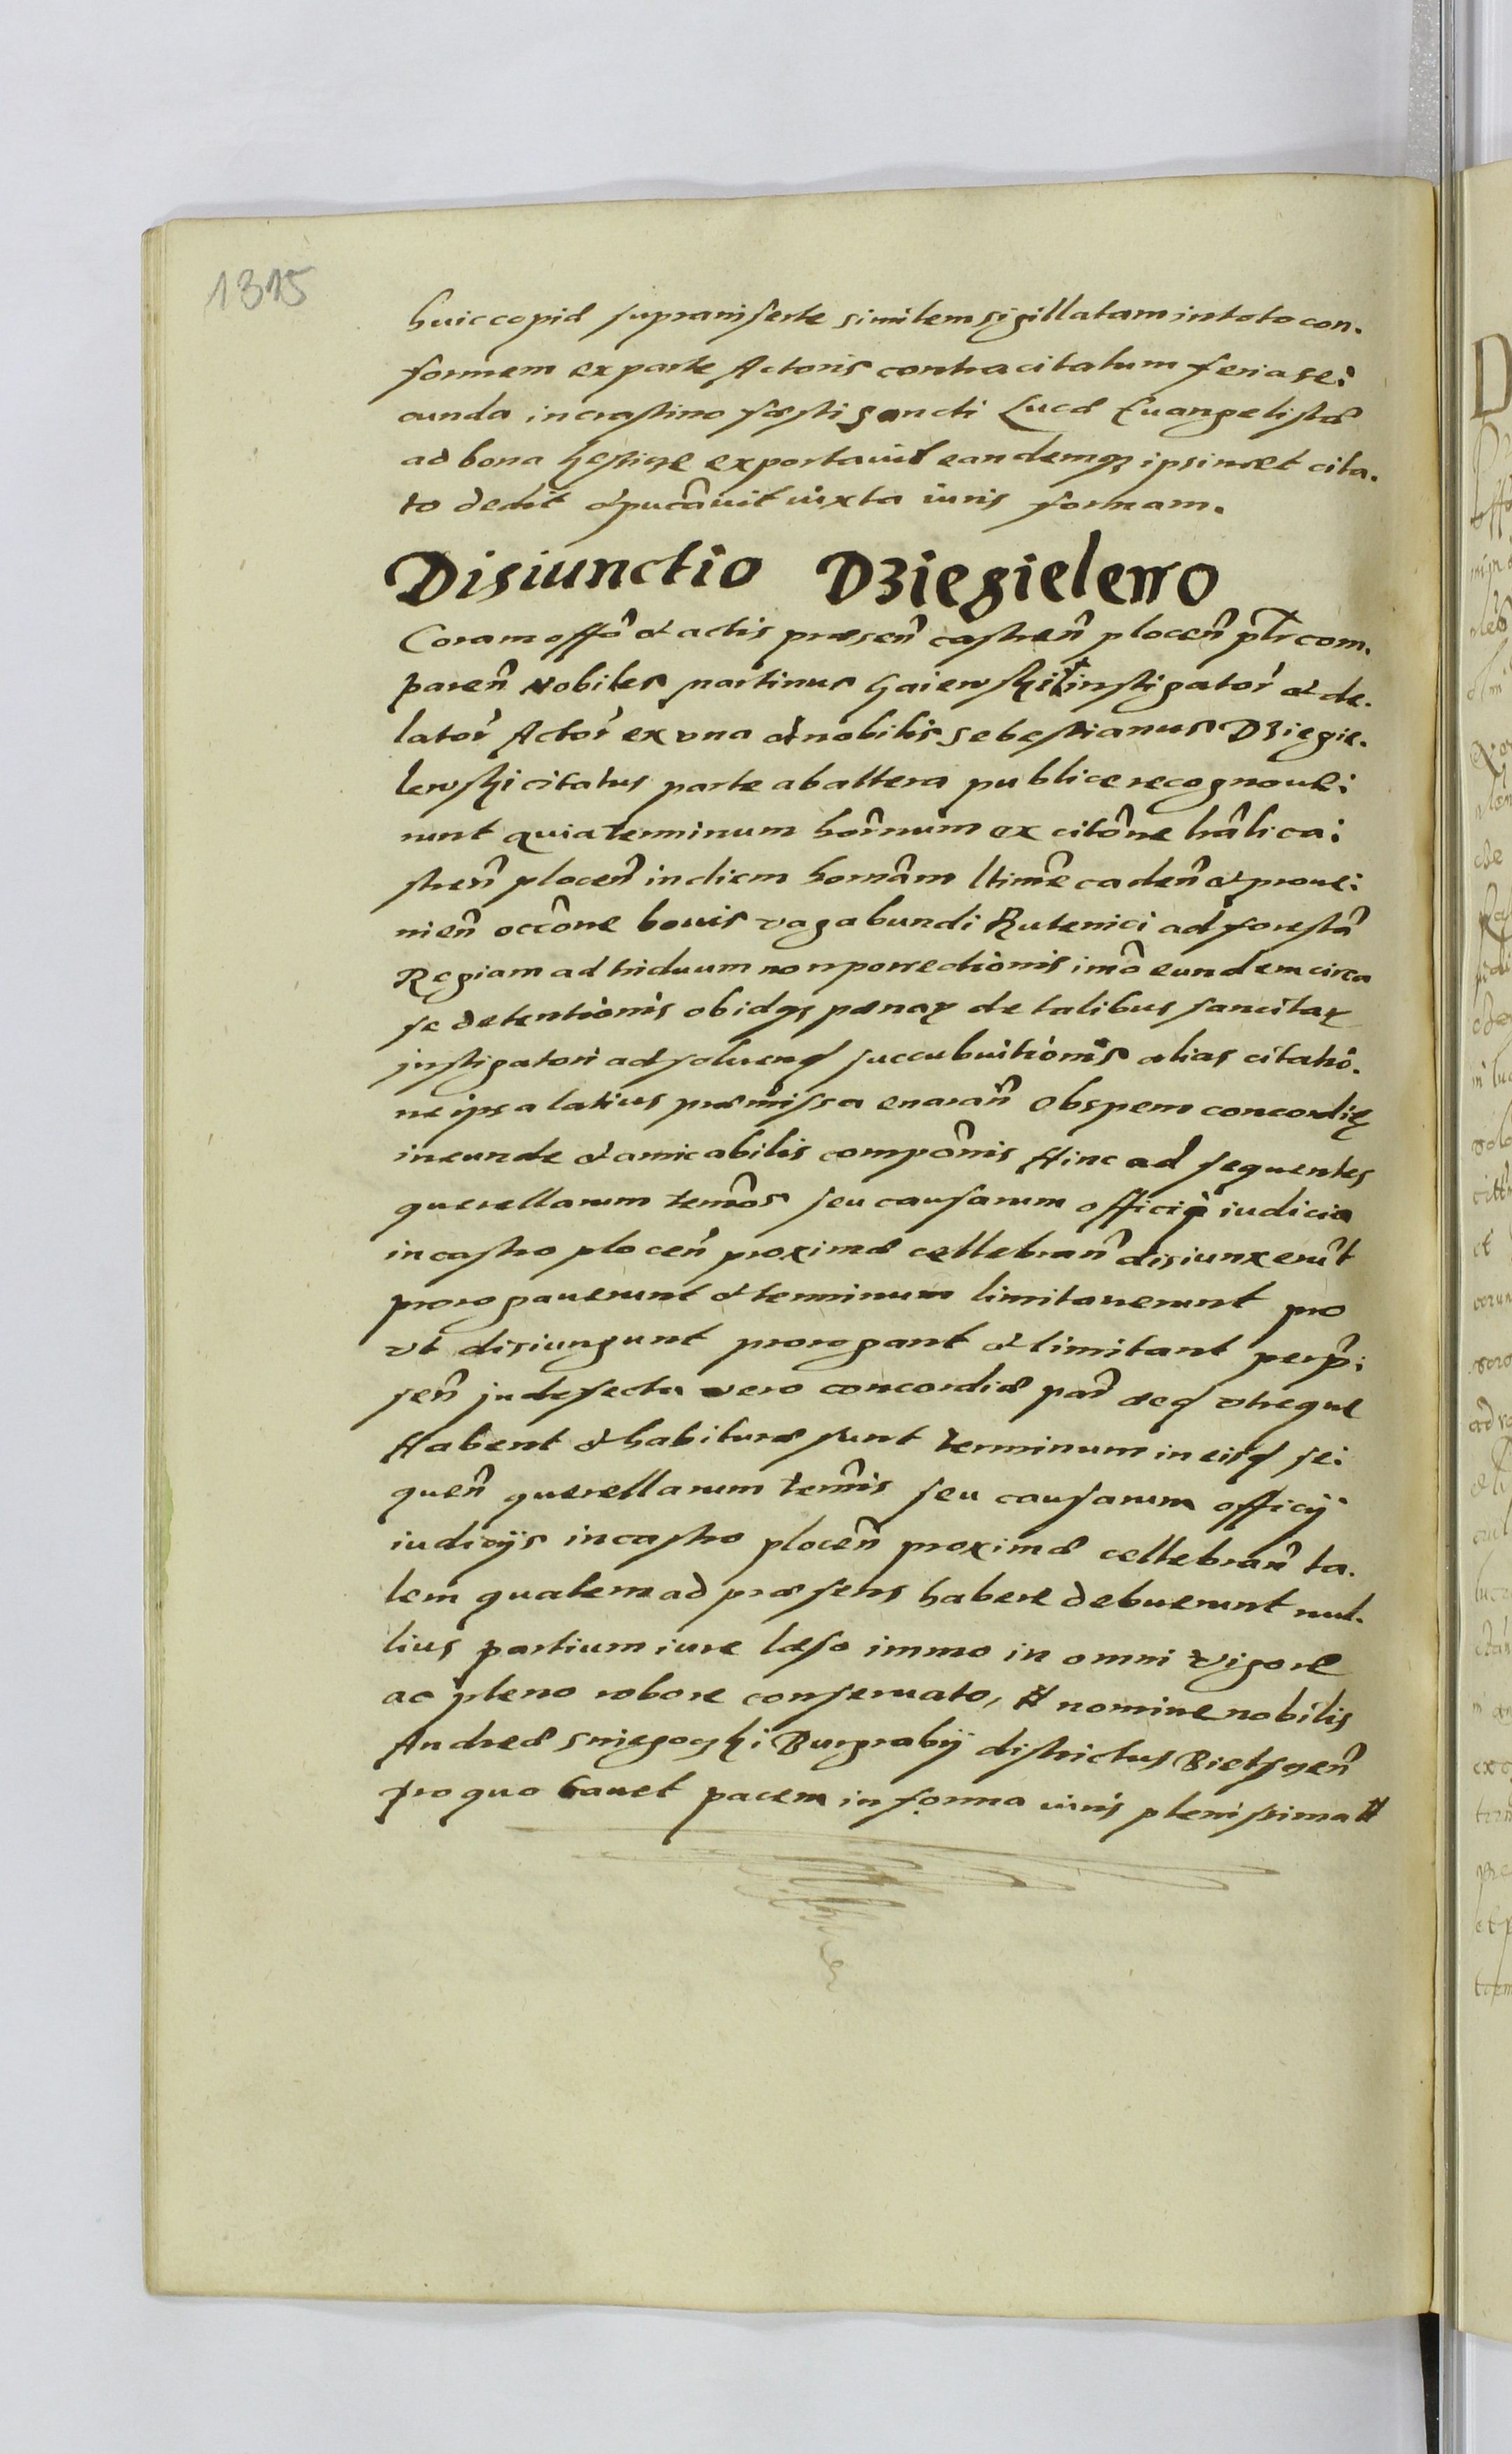 1315
huic copiæ suprainserte similem sigillatam in toto con.
formem ex parte Actoris contra citatum feria se:
cunda in crastino fæsti sancti Lucæ Euangelistæ
ad bona exportauit eandemq3 ipsimet cita.
to dedit & pucâuit iuxta iuris formam.
Disiunctio Dziegielewo
Coram offô & actis præsen̂ castren̂ plocen̂ pl̂r com.
paren̂ Nobiles martinus Gaiewski instigator̂ & de.
lator̂ Actor̂ ex vna & nobilis Sebestianus Dziegie.
lewski citatus parte ab altera publice recognoue:
runt quia terminum hor̂num ex citône lrâli ca:
stren̂ plocen̂ in diem hornâm ltimê caden̂ & proue:
nien̂ occône bouis vagabundi Rutenici ad forestâ
Regiam ad triduum non porrectionis imô eundem circa
se detentionis ob idq3 pænaꝝ de talibus sancitaꝝ
instigatori ad soluend succubuitionis alias citatio.
ne ipsa latius præmissa enaran̂ Ob spem concordię
ineunde & amicabilis compônis Hinc ad sequentes
querellarum termôs seu causarum officij iudicia
in castro plocen̂ proximæ cellebran̂ disiunxerût
prorogauerunt & terminum limitauerunt pro
vt disiungunt prorogant & limitant per p̂:
sen̂ in defectu vero concordiæ par̂ vtreque
Habent & habituræ sunt terminum in eisd se:
quen̂ querellarum termîs seu causarum officij
iudicijs in castro plocen̂ proximæ cellebran̂ ta.
lem qualem ad præsens habere debuerunt nul.
lius partium iure læso immo in omni vigore
ac pleno robore conseruato, # nomine nobilis
Andreæ Burgrabij districtus Bielscen̂
pro quo cauet pacem in forma iuris plenissima #